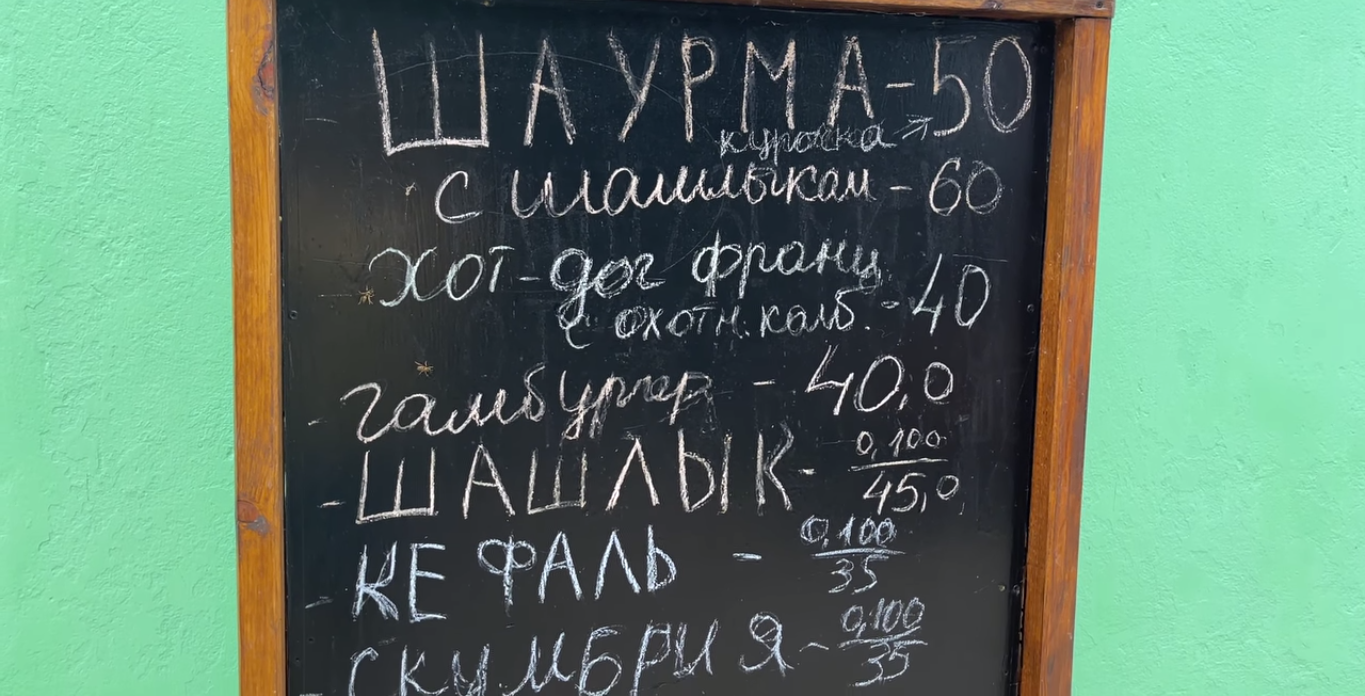 ШАУРМА-50
курочка
с шашлыкам - 60
хот-дог франц.
с охотн. колб. - 40
гамбургер - 40,0
- ШАШЛЫК - 0,100
45,0
- КЕФАЛЬ - 0,100
35
- СКУМБРИЯ - 0,100
35